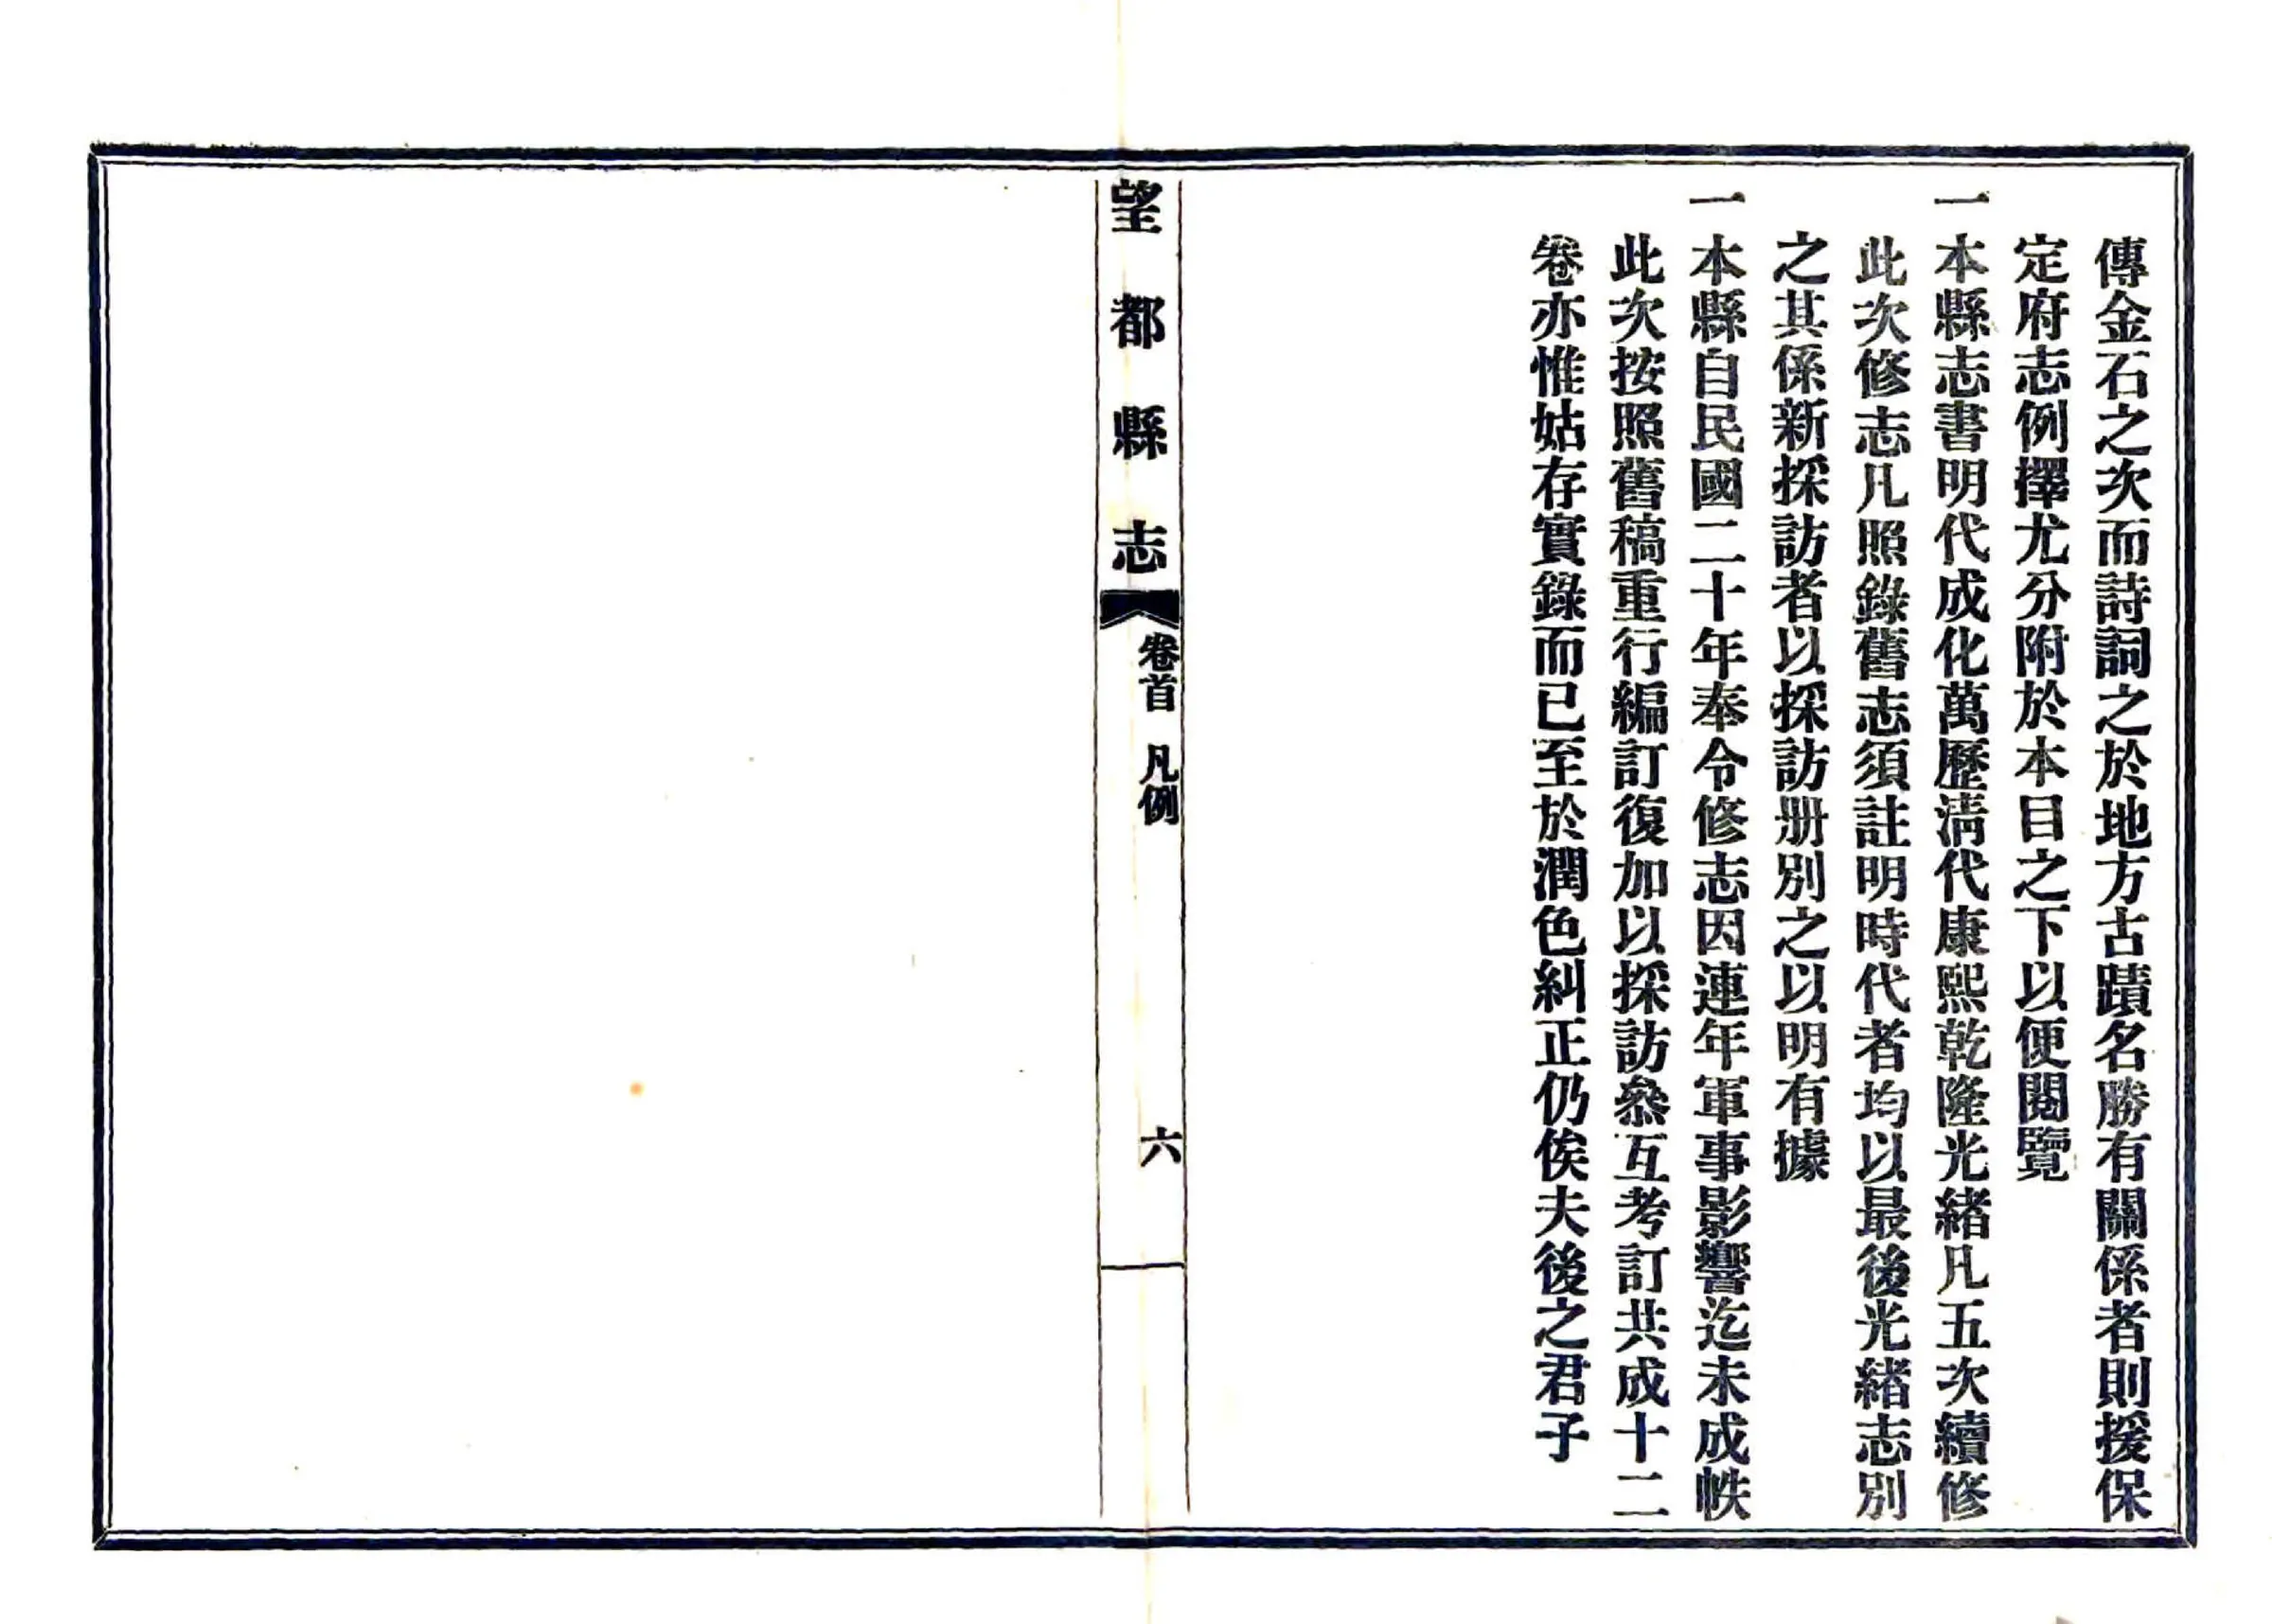 傳金石之次而詩詞之於地方古蹟名勝有關係者則援保
定府志例擇尤分附於本目之下以便閱覽
一本縣志書明代成化萬歷淸代康熙乾隆光緒凡五次續修
此次修志凡照錄舊志須註明時代者均以最後光緒志別
之其係新採訪者以採訪册別之以明有據
一本縣自民國二十年奉令修志因連年軍事影響迄未成帙
此次按照舊稿重行編訂復加以採訪叅互考訂共成十二
卷亦惟姑存實錄而已至於潤色糾正仍俟夫後之君子
望都縣志
卷首 凡例
六